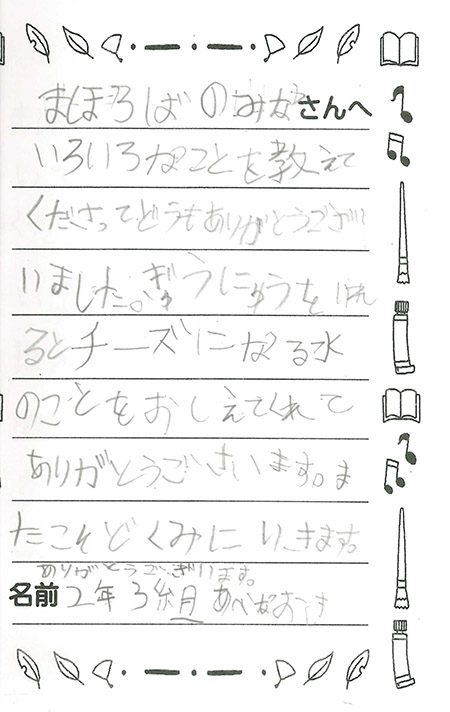 まほろばのみなさんへ
いろいろなことを教えて
くださってどうもありがとうござい
いました。ぎゅうにゅうをいれ
るとチーズになる水
のことをおしえてくれて
ありがとうございます。ま
たこそどくみにいきます。
ありがとうございます。
名前 2年3組